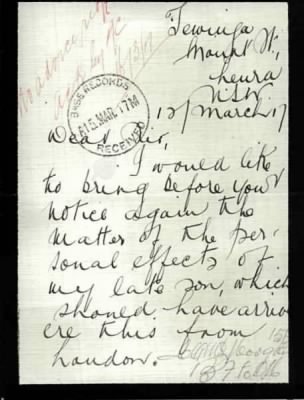 Mount St,
Leura
N.S.W.
12 March 17
BASE RECORDS
15 MAR. 17
RECEIVED
Dear Sir,
I would like
to bring before your
notice again the
matter of the per-
sonal effects of
my late son, which
should have arriv
ere this from
London.